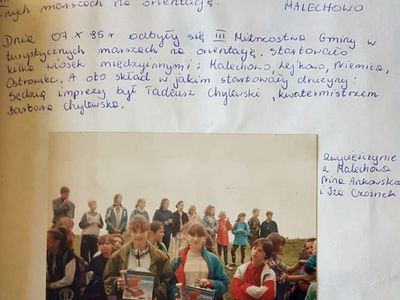 nych marszach na orientację.
MALECHOWO
Dnia 07 X 95 r odbyły się III Mistrzostwa Gminy w
turystycznych marszach na orientację. Startowało
kilka wiosek międzyinnymi: Malechowo, Lejkowo, Niemica,
Ostrowiec. A oto skład w jakim startowały drużyny:
Sędzią imprezy był Tadeusz Chylewski, kwatermistrzem
Barbara Chylewska.
zwyciężczynie
z Malechowa
Nina Ankowska
i Iza